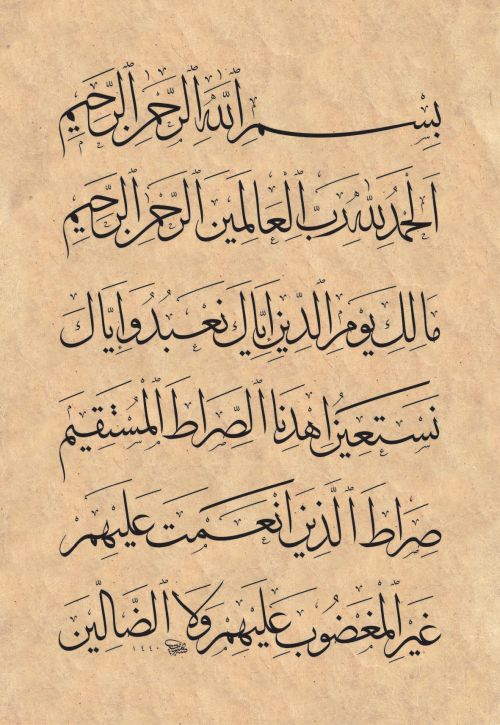 بِسْمِ ٱللَّهِ ٱلرَّحْمٰنِ ٱلرَّحِيمِ
اَلْحَمْدُ لِلّٰهِ رَبِّ ٱلْعَالَمِينَ ٱلرَّحْمٰنِ ٱلرَّحِيمِ
مَالِكِ يَوْمِ ٱلدِّينِ اِيَّاكَ نَعْبُدُ وَاِيَّاكَ
نَسْتَعِينُ اهْدِنَا ٱلصِّرَاطَ ٱلْمُسْتَقِيمَ
صِرَاطَ ٱلَّذِينَ اَنْعَمْتَ عَلَيْهِمْ
غَيْرِ ٱلْمَغْضُوبِ عَلَيْهِمْ وَلَا ٱلضَّالِّينَ
١٤٤٠